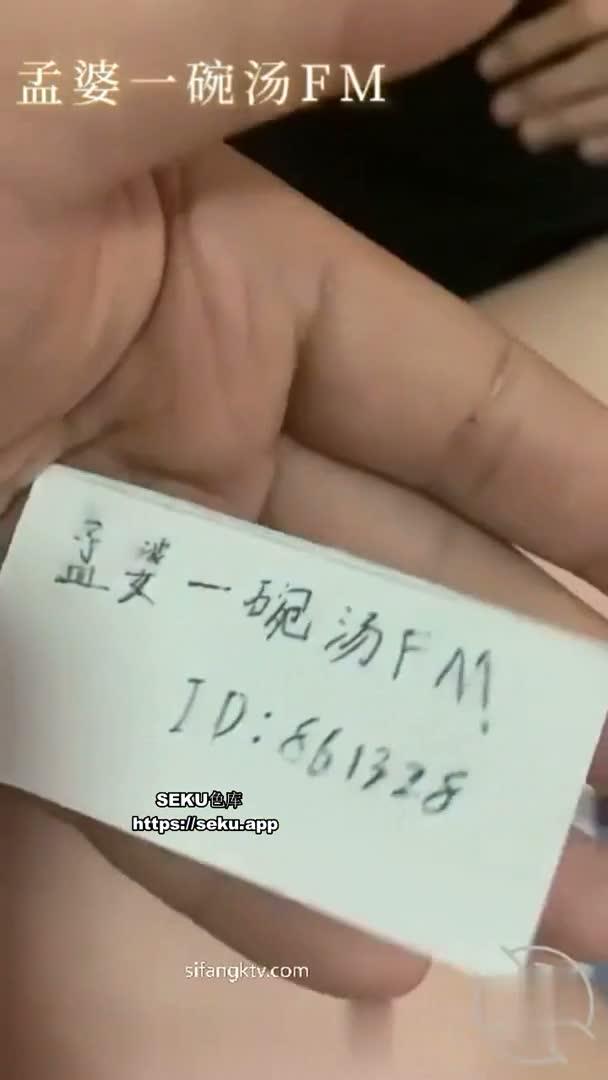 孟婆一碗汤FM
孟婆一碗汤FM
ID:861328
SEKU色库
https://seku.app
sifangktv.com